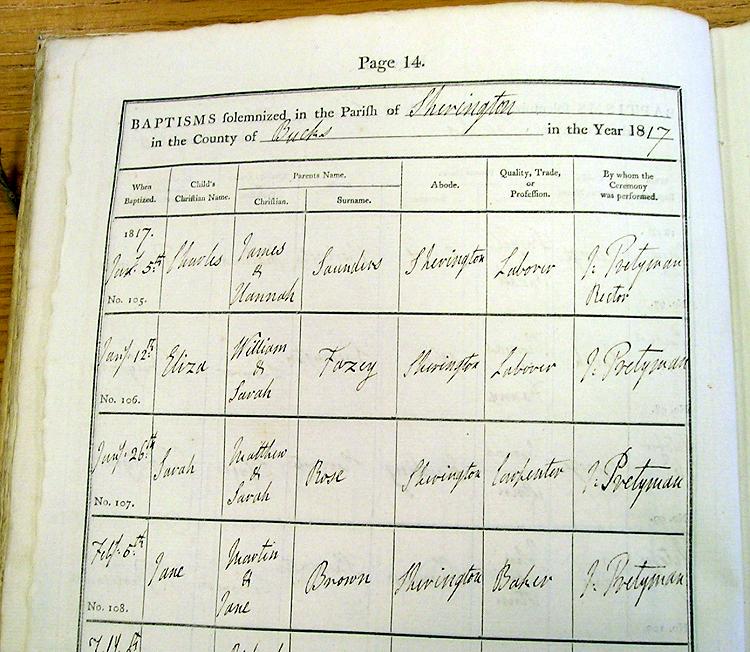 Page 14.
BAPTISMS solemnized in the Parish of Sherington
in the County of Bucks in the Year 1817
When Baptized. Child's Christian Name. Parents Name. Christian. Surname. Abode. Quality, Trade, or Profession. By whom the Ceremony was performed.
1817.
Jany. 5th Charles James & Hannah Saunders Sherington Labourer J: Pretyman Rector
No. 105.
Jany. 12th Eliza William & Sarah Fazey Sherington Labourer J: Pretyman
No. 106.
Jany. 26th Sarah Matthew & Sarah Rose Sherington Carpenter J: Pretyman
No. 107.
Feby. 6th Jane Martin & Jane Brown Sherington Baker J: Pretyman
No. 108.